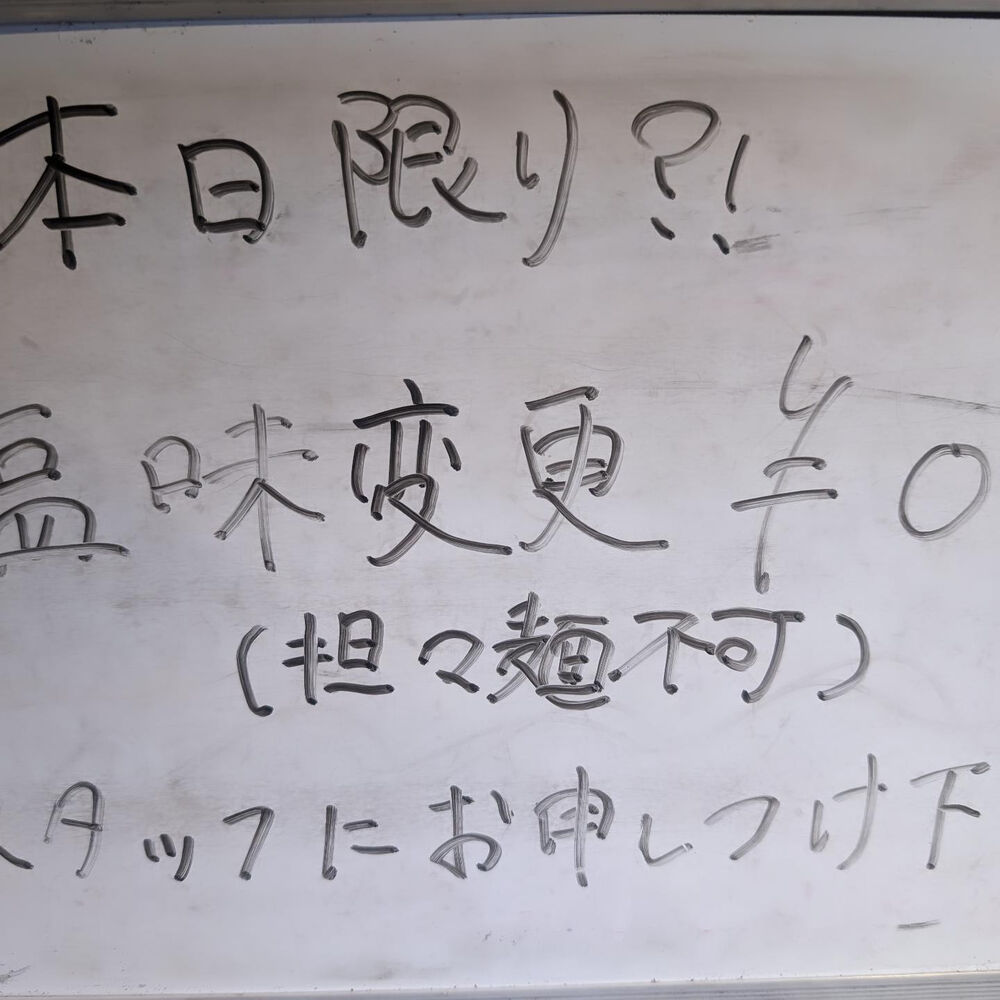 本日限り?!
塩味変更 ¥0
(担々麺不可)
スタッフにお申しつけ下